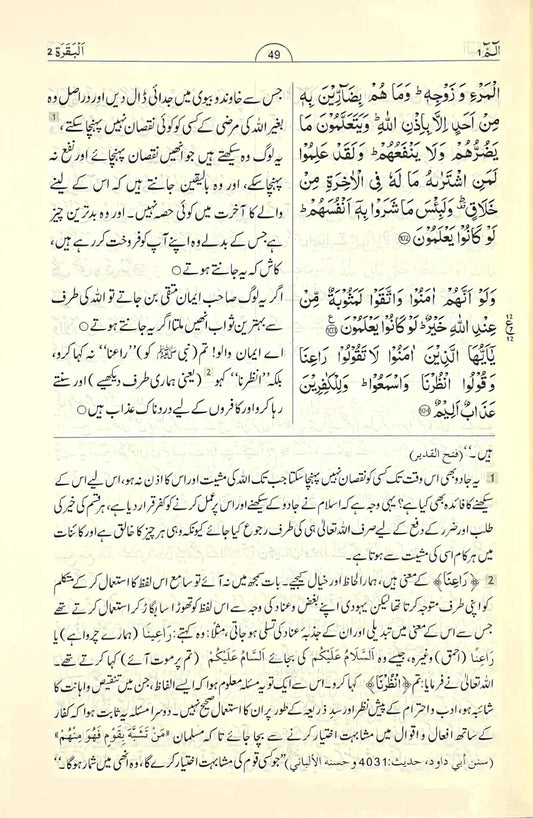 الٓمّٓ 1
49
اَلْبَقَرَة 2
الْمَرْءِ وَ زَوْجِهٖ ؕ وَمَا هُمْ بِضَآرِّيْنَ بِهٖ
مِنْ اَحَدٍ اِلَّا بِاِذْنِ اللّٰهِ ؕ وَيَتَعَلَّمُوْنَ مَا
يَضُرُّهُمْ وَلَا يَنْفَعُهُمْ ؕ وَلَقَدْ عَلِمُوْا
لَمَنِ اشْتَرٰىهُ مَا لَهٗ فِي الْاٰخِرَةِ مِنْ
خَلَاقٍ ۛؕ وَلَبِئْسَ مَا شَرَوْا بِهٖۤ اَنْفُسَهُمْ ؕ
لَوْ كَانُوْا يَعْلَمُوْنَ 102
وَلَوْ اَنَّهُمْ اٰمَنُوْا وَاتَّقَوْا لَمَثُوْبَةٌ مِّنْ
عِنْدِ اللّٰهِ خَيْرٌ ؕ لَوْ كَانُوْا يَعْلَمُوْنَ 103
يٰۤاَيُّهَا الَّذِيْنَ اٰمَنُوْا لَا تَقُوْلُوْا رَاعِنَا
وَقُوْلُوا انْظُرْنَا وَاسْمَعُوْا ؕ وَلِلْكٰفِرِيْنَ
عَذَابٌ اَلِيْمٌ 104
12
ع
12
جس سے خاوند و بیوی میں جدائی ڈال دیں اور دراصل وہ
بغیر اللہ کی مرضی کے کسی کو کوئی نقصان نہیں پہنچا سکتے، 1
یہ لوگ وہ سیکھتے ہیں جو انھیں نقصان پہنچائے اور نفع نہ
پہنچا سکے، اور وہ بالیقین جانتے ہیں کہ اس کے لینے
والے کا آخرت میں کوئی حصہ نہیں۔ اور وہ بدترین چیز
ہے جس کے بدلے وہ اپنے آپ کو فروخت کر رہے ہیں،
کاش کہ یہ جانتے ہوتے ○
اگر یہ لوگ صاحب ایمان متقی بن جاتے تو اللہ کی طرف
سے بہترین ثواب انھیں ملتا اگر یہ جانتے ہوتے ○
اے ایمان والو! تم (نبی ﷺ کو) ”راعنا“ نہ کہا کرو،
بلکہ ”انظرنا“ کہو 2 (یعنی ہماری طرف دیکھیے) اور سنتے
رہا کرو اور کافروں کے لیے دردناک عذاب ہیں ○
ہیں۔“ (فتح القدیر)
1 یہ جادو بھی اس وقت تک کسی کو نقصان نہیں پہنچا سکتا جب تک اللہ کی مشیت اور اس کا اذن نہ ہو، اس لیے اس کے
سیکھنے کا فائدہ بھی کیا ہے؟ یہی وجہ ہے کہ اسلام نے جادو کے سیکھنے اور اس پر عمل کرنے کو کفر قرار دیا ہے، ہر قسم کی خیر کی
طلب اور ضرر کے دفع کے لیے صرف اللہ تعالیٰ ہی کی طرف رجوع کیا جائے کیونکہ وہی ہر چیز کا خالق ہے اور کائنات
میں ہر کام اسی کی مشیت سے ہوتا ہے۔
2 ﴿رَاعِنَا﴾ کے معنی ہیں، ہمارا لحاظ اور خیال کیجیے۔ بات سمجھ میں نہ آئے تو سامع اس لفظ کا استعمال کر کے متکلم
کو اپنی طرف متوجہ کرتا تھا لیکن یہودی اپنے بغض و عناد کی وجہ سے اس لفظ کو تھوڑا سا بگاڑ کر استعمال کرتے تھے
جس سے اس کے معنی میں تبدیلی اور ان کے جذبۂ عناد کی تسلی ہو جاتی، مثلاً: وہ کہتے: رَاعِينَا (ہمارے چرواہے) یا
رَاعِنًا (احمق) وغیرہ، جیسے وہ اَلسَّلَامُ عَلَيْكُم کی بجائے اَلسَّامُ عَلَيْكُمْ (تم پر موت آئے) کہا کرتے تھے
اللہ تعالیٰ نے فرمایا: تم ﴿انْظُرْنَا﴾ کہا کرو۔ اس سے ایک تو یہ مسئلہ معلوم ہوا کہ ایسے الفاظ، جن میں تنقیص و اہانت کا
شائبہ ہو، ادب و احترام کے پیش نظر اور سدِّ ذریعہ کے طور پر ان کا استعمال صحیح نہیں۔ دوسرا مسئلہ یہ ثابت ہوا کہ کفار
کے ساتھ افعال و اقوال میں مشابہت اختیار کرنے سے بچا جائے تاکہ مسلمان «مَنْ تَشَبَّهَ بِقَوْمٍ فَهُوَ مِنْهُمْ»
(سنن أبي داود، حديث: 4031 وحسنه الألباني) ”جو کسی قوم کی مشابہت اختیار کرے گا، وہ انھی میں شمار ہوگا۔“